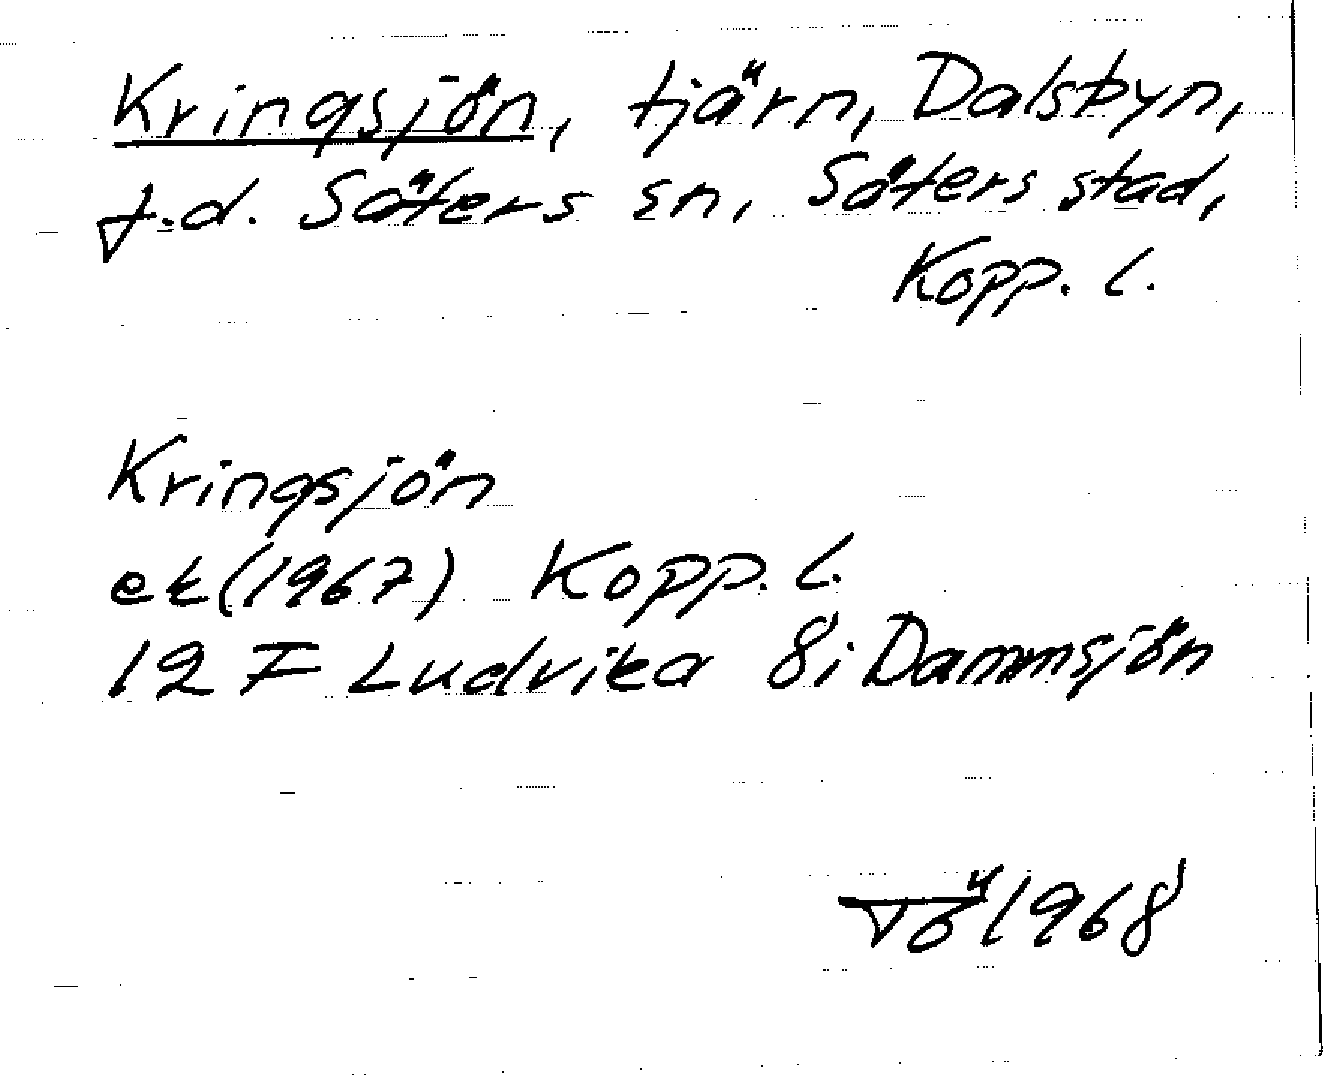 Kringsjön, tjärn, Dalsbyn,
f.d. Säters sn, Säters stad,
Kopp. l.
Kringsjön
ek (1967) Kopp. l.
12 F Ludvika 8i Dammsjön
1968